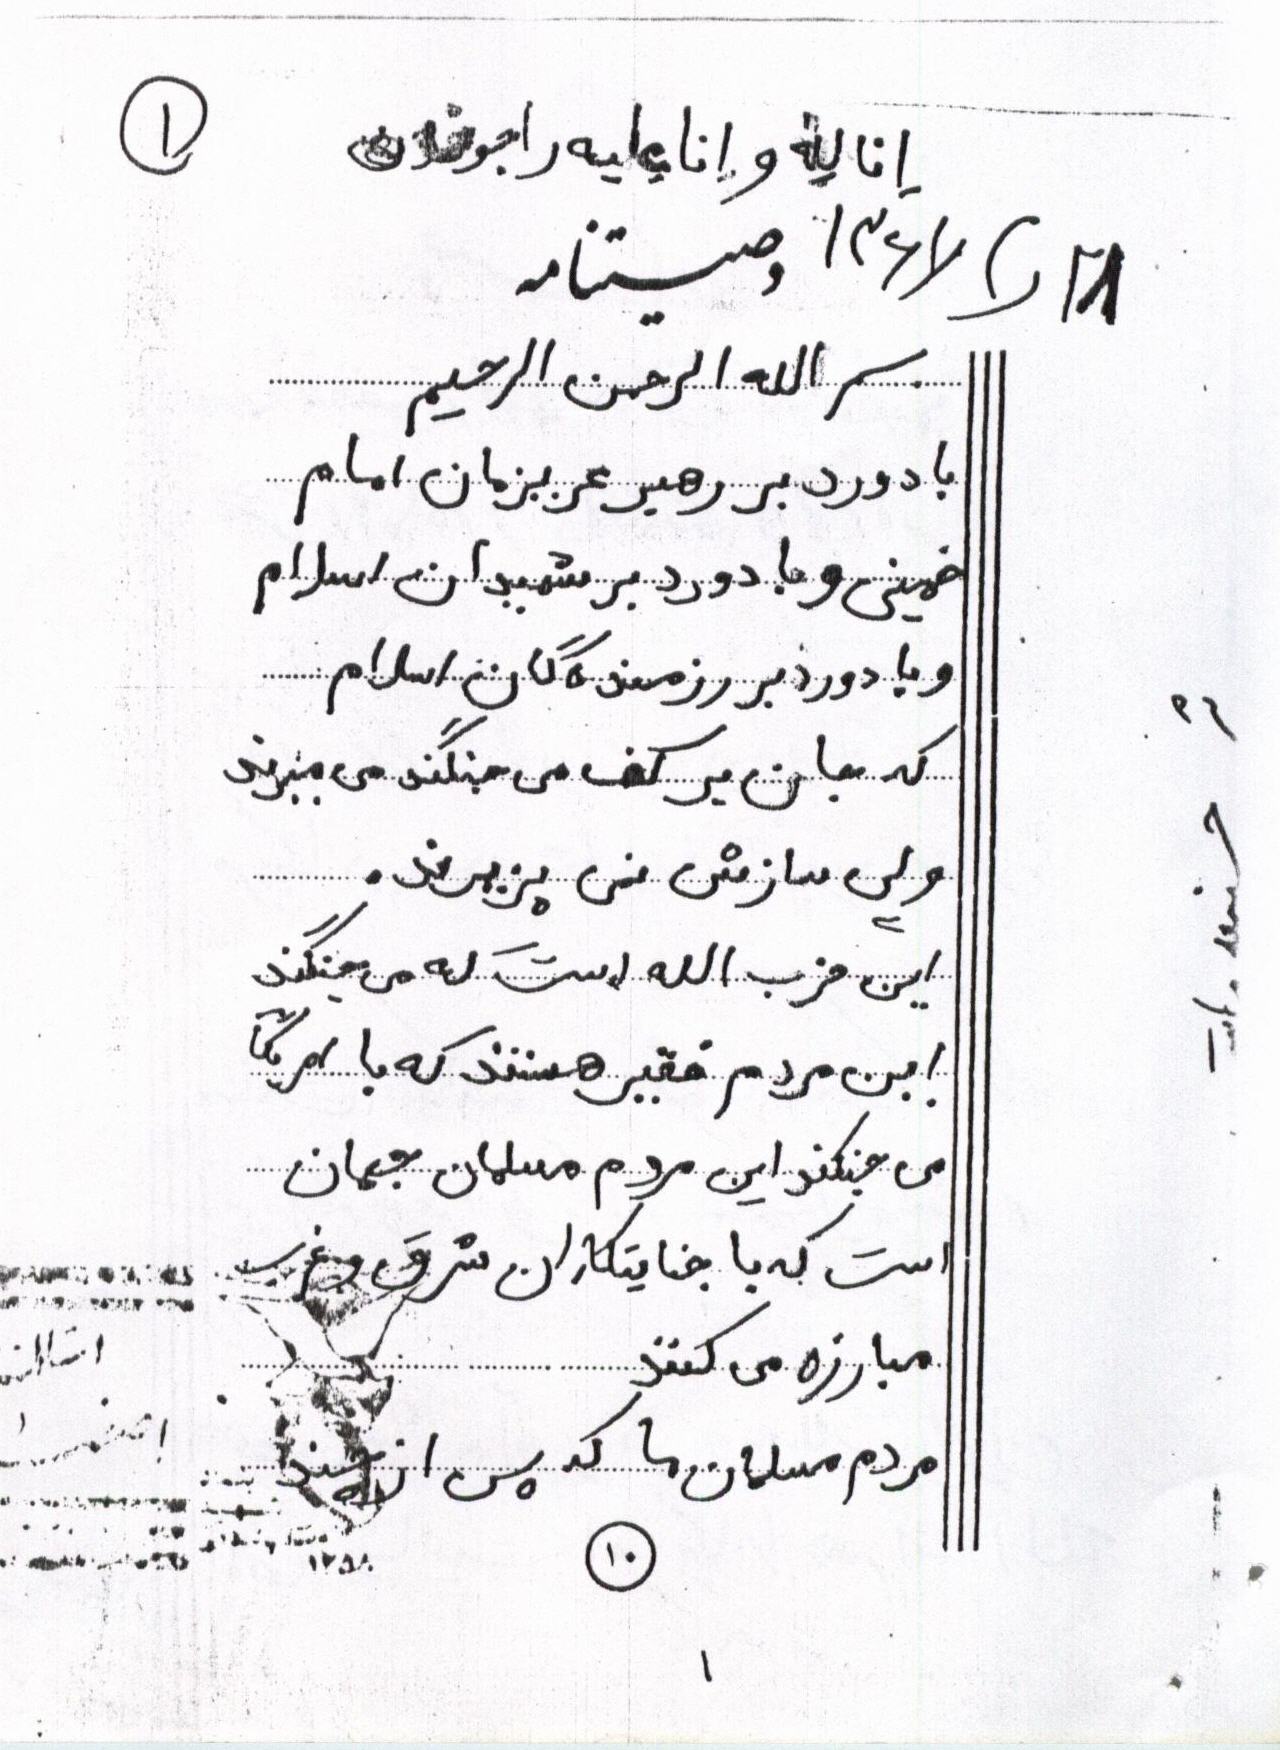 ۱
اِنا لِلّه و اِنا علیه راجعون
وصیتنامه ۱۳۶۷
۲۸
بسم الله الرحمن الرحیم
با دورد بر رهبر عزیزمان امام
خمینی و با دورد بر شهیدان اسلام
و با دورد بر رزمنده گان اسلام
که جان بر کف می جنگند می میرند
ولی سازش نمی پزیرند.
این حزب الله است که می جنگند
این مردم فقیر هستند که با امریکا
می جنگند این مردم مسلمان جهان
است که با جنایتکاران شرق و غرب
مبارزه می کنند
مردم مسلمان ما که پس از چند
۱۳۵۸
۱۰
۱